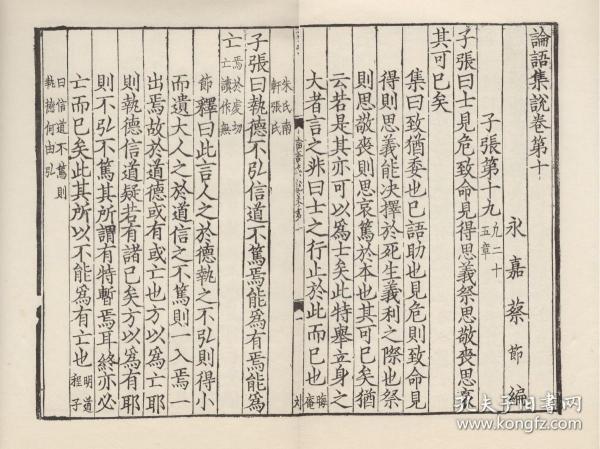 論語集說卷第十
永嘉蔡節編
子張第十九凡二十五章
子張曰士見危致命見得思義祭思敬喪思哀
其可已矣
集曰致猶委也已語助也見危則致命見
得則思義能決擇於死生義利之際也祭
則思敬喪則思哀篤於本也其可已矣猶
云若是其亦可以為士矣此特舉立身之
大者言之非曰士之行止於此而已也晦庵
朱氏南軒張氏
子張曰執德不弘信道不篤焉能為有焉能為
亡焉於虔切亡讀作無
節釋曰此言人之於德執之不弘則得小
而遺大人之於道信之不篤則一入焉一
出焉故於道德或有或亡也方以為亡耶
則執德信道疑若有諸已矣方以為有耶
則不弘不篤其所謂有特暫焉耳終亦必
亡而已矣此其所以不能為有亡也明道程子
曰信道不篤則執德何由弘
孔夫子旧书网